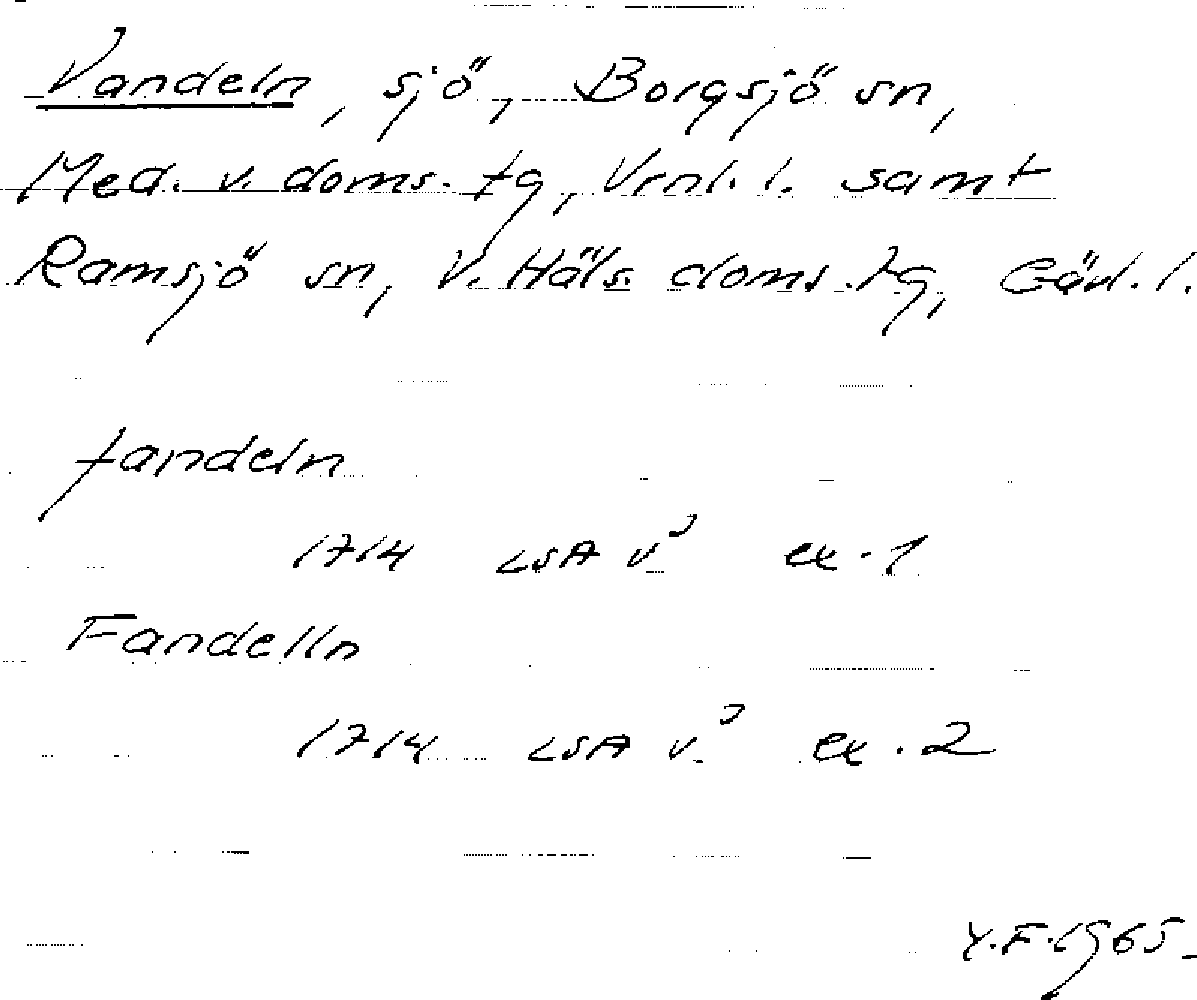 Vandeln, sjö, Borgsjö sn,
Med. v. doms. tg, Vrnl. l. samt
Ramsjö sn, V. Häls. doms. tg, Gävl. l.
fandeln
1714 LSA v? ex. 1
Fandelln
1714 LSA v? ex. 2
Y.F. 1965